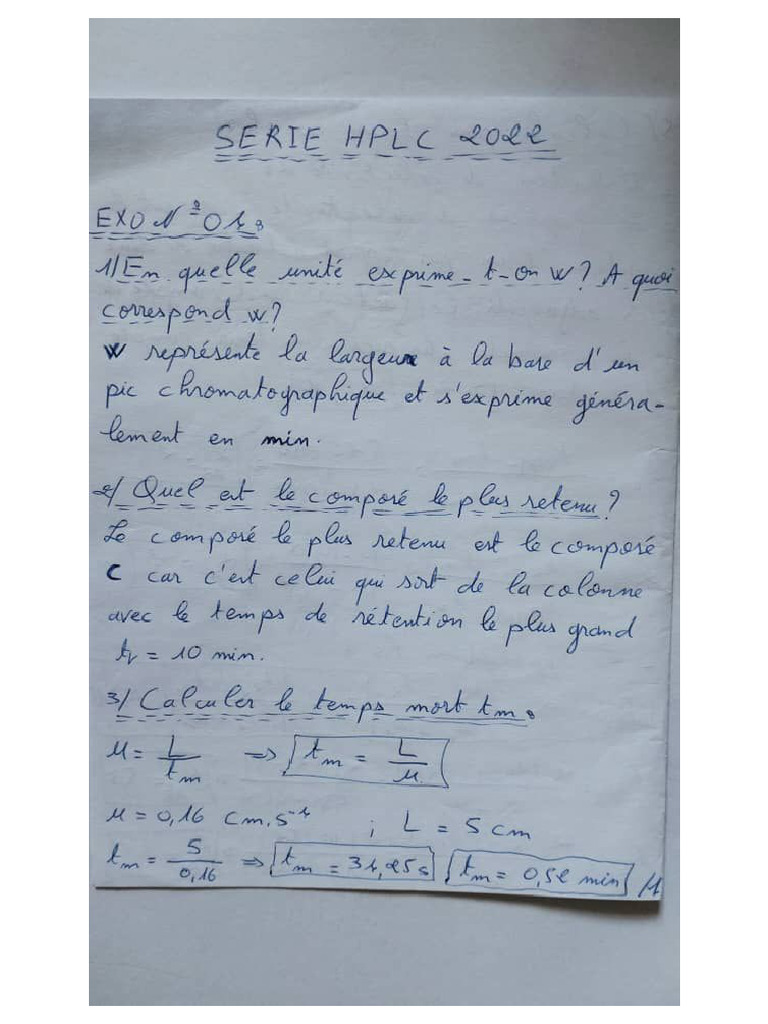 SERIE HPLC 2022
EXO N°01:
1/ En quelle unité exprime-t-on w? A quoi
correspond w?
w représente la largeur à la base d'un
pic chromatographique et s'exprime généra-
lement en min.
2/ Quel est le composé le plus retenu?
Le composé le plus retenu est le composé
C car c'est celui qui sort de la colonne
avec le temps de rétention le plus grand
tr = 10 min.
3/ Calculer le temps mort tm:
μ = L/tm => tm = L/μ
μ = 0,16 cm.s⁻¹ ; L = 5 cm
tm = 5/0,16 => tm = 31,25s tm = 0,52 min /1